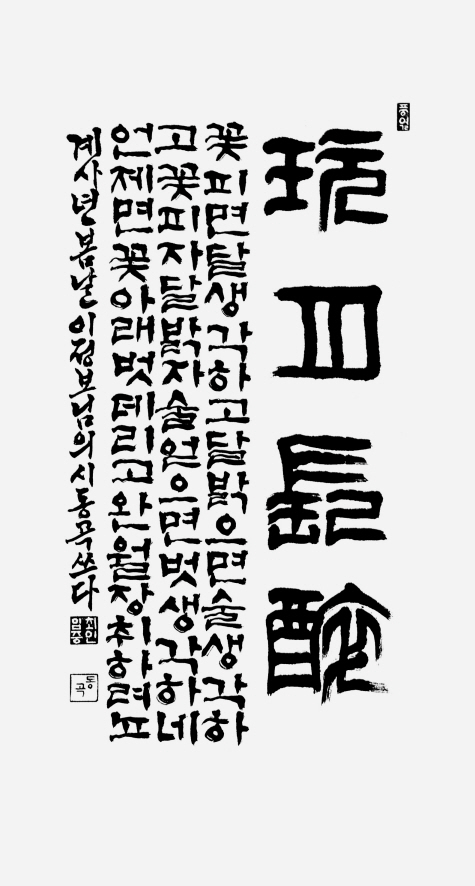 玩月長醉
꽃피면달생각하고달밝으면술생각하
고꽃피자달밝자술얻으면벗생각하네
언제면꽃아래벗데리고완월장취하려뇨
계사년봄날이정보님의시동곡쓰다
동곡